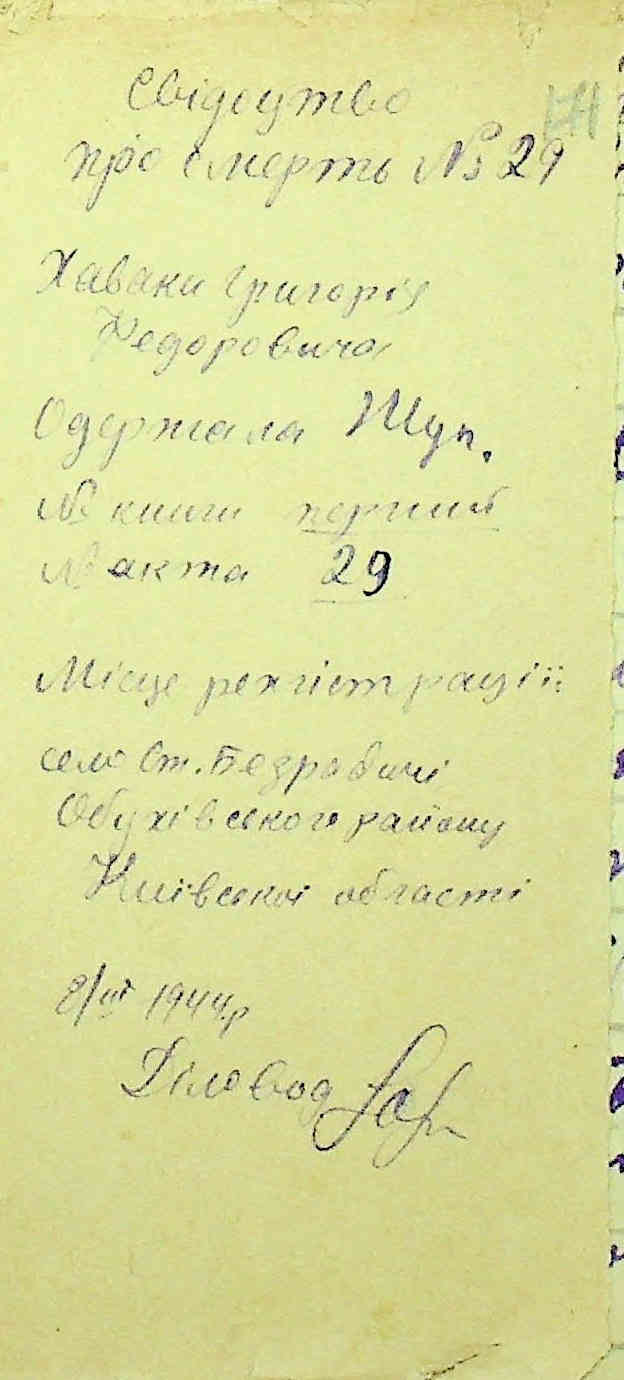 Свідоцтво
171
про смерть № 29
Хаваки Григорія
Федоровича
Одержала
№ книги перший
№ акта 29
Місце рехгістрації:
село Ст. Безрадичі
Обухівського району
Київської області
8/III 1944 р
Діловод